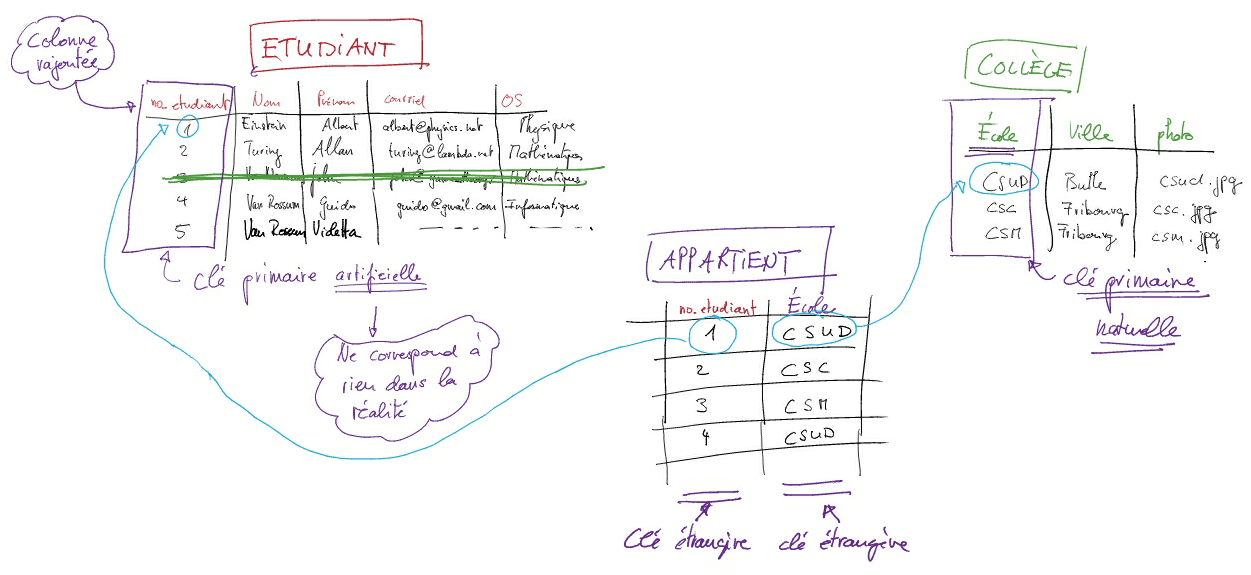 Colonne
rajoutée
ETUDIANT
no. etudiant Nom Prénom courriel OS
1 Einstein Albert albert@physics.net Physique
2 Turing Allan turing@lambda.net Mathématiques
3 John Mathématiques
4 Van Rossum Guido guido@gmail.com Informatique
5 Van Rossum Violetta
clé primaire artificielle
Ne correspond à
rien dans la
réalité
APPARTIENT
no. etudiant École
1 CSUD
2 CSC
3 CSM
4 CSUD
Clé étrangère clé étrangère
COLLÈGE
École Ville photo
CSUD Bulle csud.jpg
CSC Fribourg csc.jpg
CSM Fribourg csm.jpg
clé primaire
naturelle